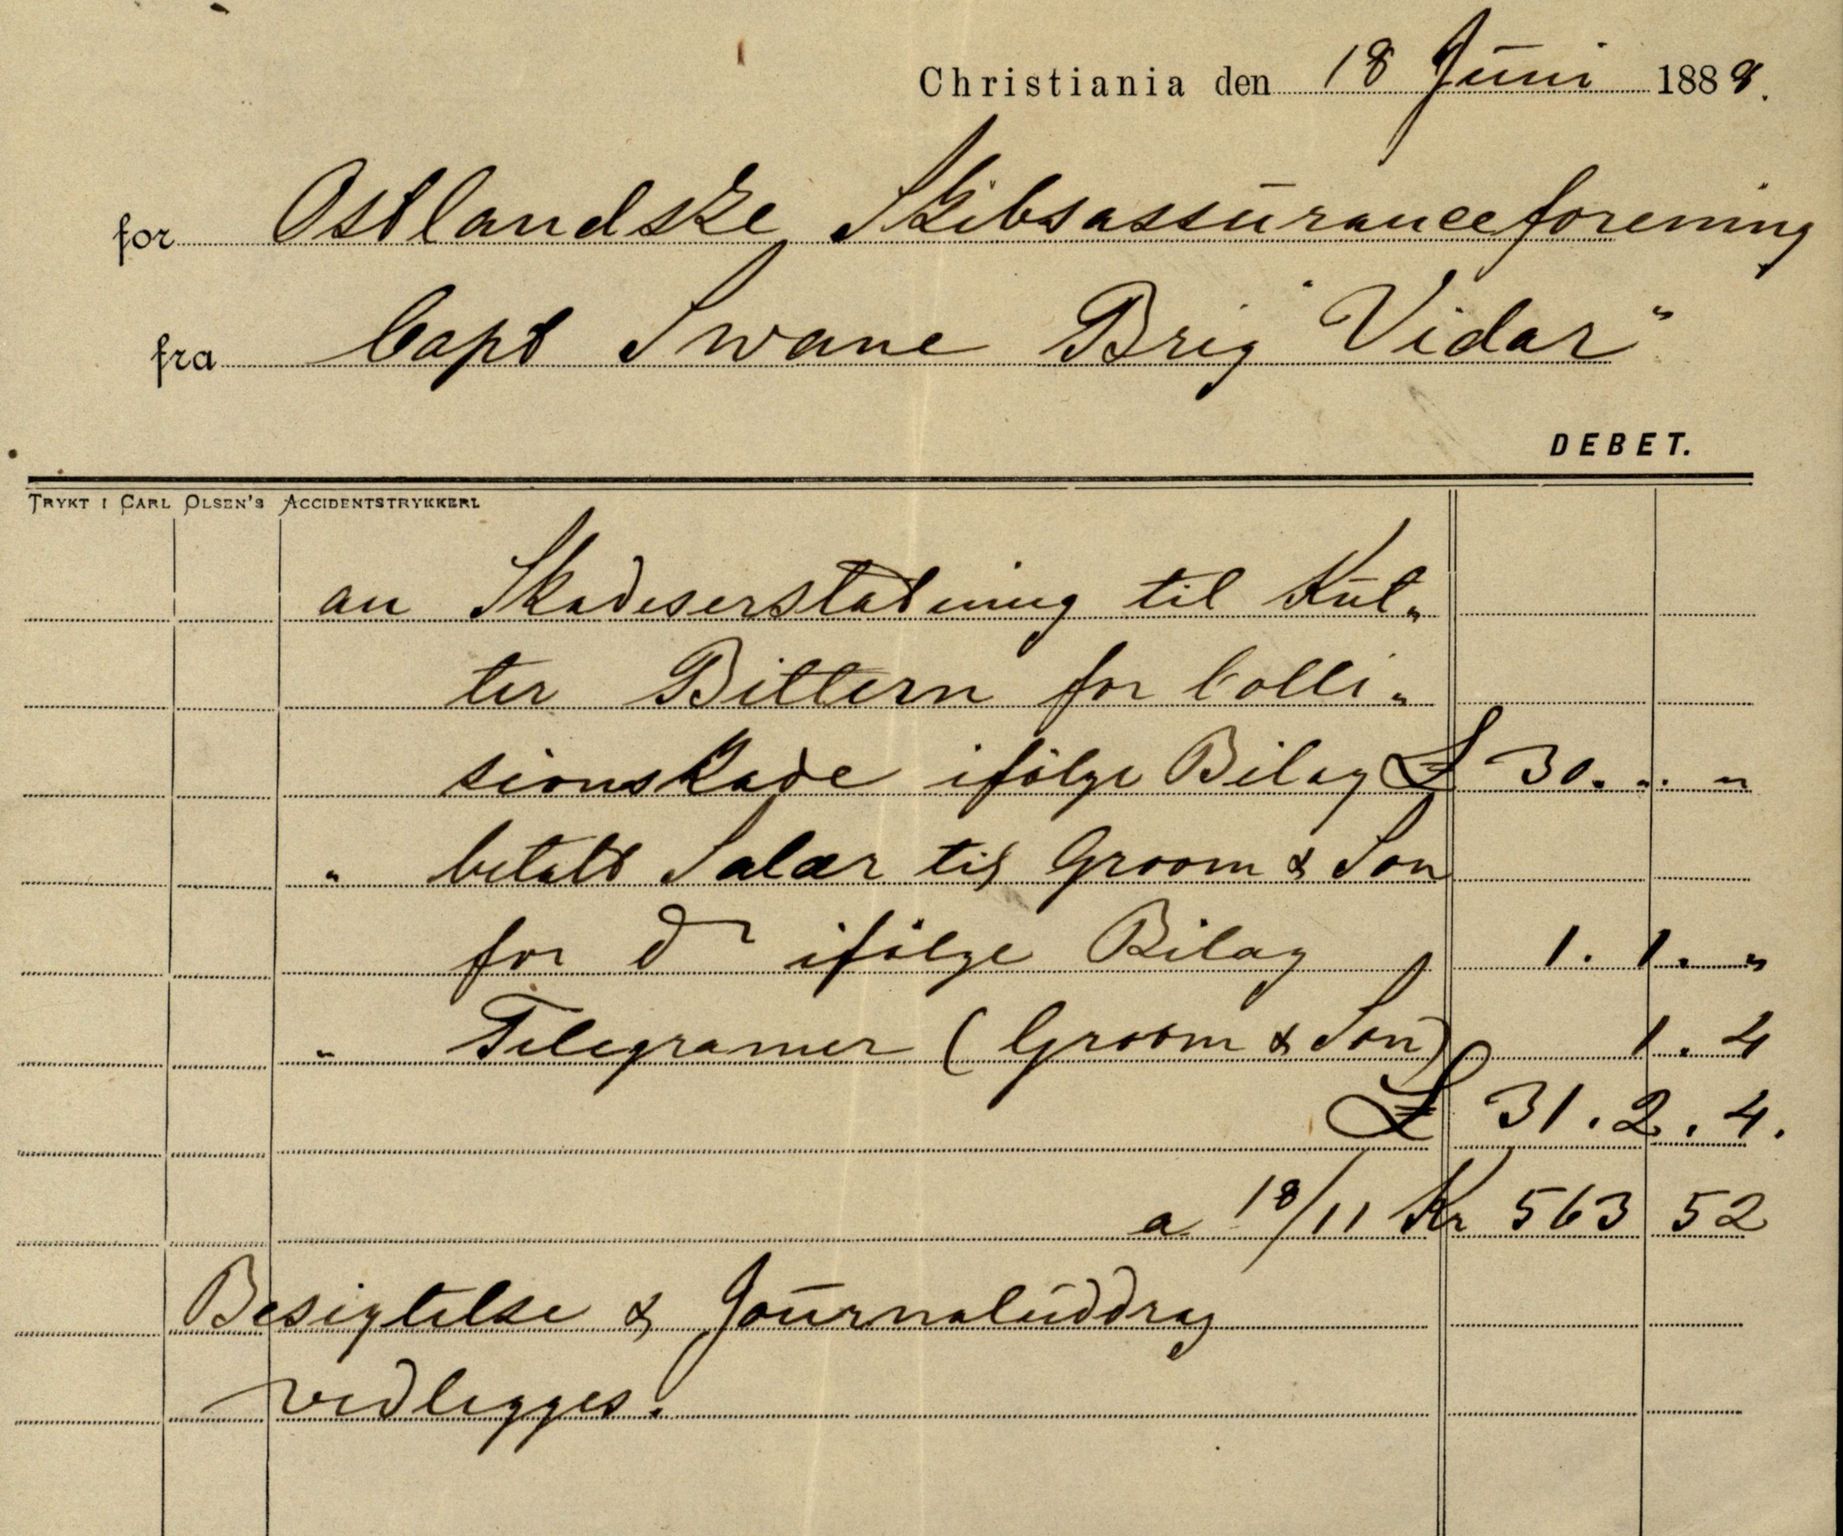 Christiania den 18 Juni 1888.
for Ostlandske Skibsassuranceforening
fra Capt Swane Brig "Vidar"
DEBET.
TRYKT I CARL OLSEN'S ACCIDENTSTRYKKERI.
an Skadeserstatning til Kut„
ter Bittern for Colli„
sionskade ifölge Bilag £ 30. „. „
„ betalt Salær til Groom & Son
for do ifölge Bilag 1. 1. „
„ Telegramer (Groom & Son) 1. 4
£ 31. 2. 4.
a 18/11 Kr 563 52
Besigtelse & Journaluddrag
vedlegges.